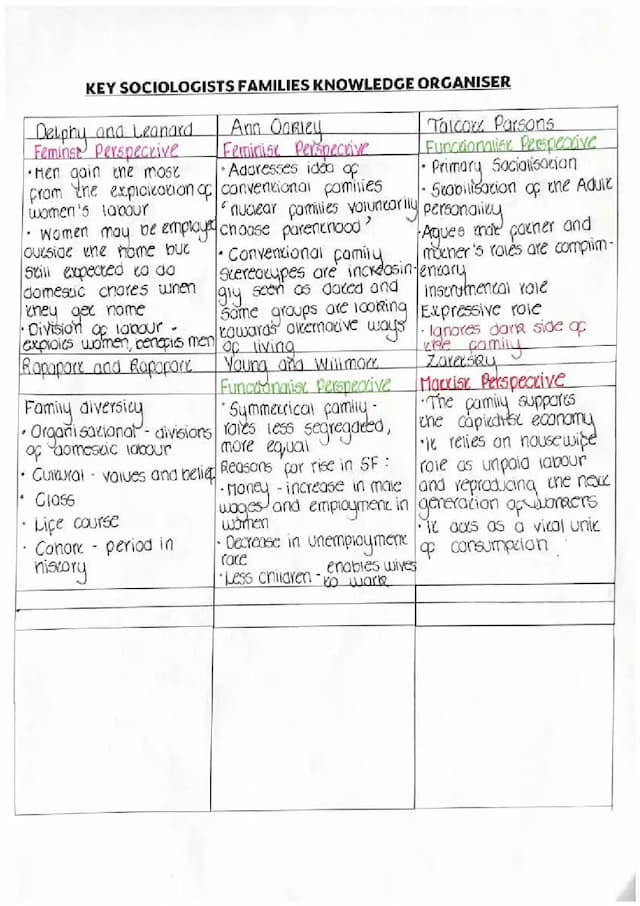 KEY SOCIOLOGISTS FAMILIES KNOWLEDGE ORGANISER
Delphy and Leonard
Feminist Perspective
• Men gain the most
from the exploitation of
women's labour
• Women may be employed
outside the home but
still expected to do
domestic chores when
they get home
• Division of labour -
exploits women, benefits men
Ann Oakley
Feminist Perspective
• Addresses idea of
conventional families
'nuclear families voluntarily
choose parenthood'
• Conventional family
stereotypes are increasin-
gly seen as dated and
some groups are looking
towards alternative ways
of living
Talcott Parsons
Functionalist Perspective
• Primary Socialisation
• Stabilisation of the Adult
personality
• Agues that father and
mother's roles are complim-
entary
Instrumental role
Expressive role
• Ignores dark side of
the family
Rapoport and Rapoport
Family diversity
• Organisational - divisions
of domestic labour
• Cultural - values and belief
• Class
• Life course
• Cohort - period in
history
Young and Willmott
Functionalist Perspective
• Symmetrical family -
roles less segregated,
more equal
Reasons for rise in SF:
• Money - increase in male
wages and employment in
women
• Decrease in unemployment
rate
• Less children - enables wives
to work
Zaretsky
Marxist Perspective
• The family supports
the capitalist economy
• It relies on housewife
role as unpaid labour
and reproducing the next
generation of workers
• It acts as a vital unit
of consumption